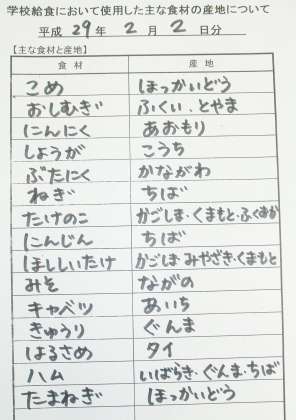 学校給食において使用した主な食材の産地について
平成 29 年 2 月 2 日分
【主な食材と産地】
食材 産地
こめ ほっかいどう
おしむぎ ふくい・とやま
にんにく あおもり
しょうが こうち
ぶたにく かながわ
ねぎ ちば
たけのこ かごしま・くまもと・ふくおか
にんじん ちば
ほししいたけ かごしま・みやざき・くまもと
みそ ながの
キャベツ あいち
きゅうり ぐんま
はるさめ タイ
ハム いばらき・ぐんま・ちば
たまねぎ ほっかいどう